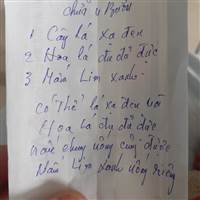 chữa u Bướu
1 Cây lá xa đen
2 Hoa lá đu đủ đực
3 Nấm Lim xanh
có thể lá xa đen với
Hoa lá đu đủ đực
chung uống cũng được
Nấm Lim xanh uống riêng